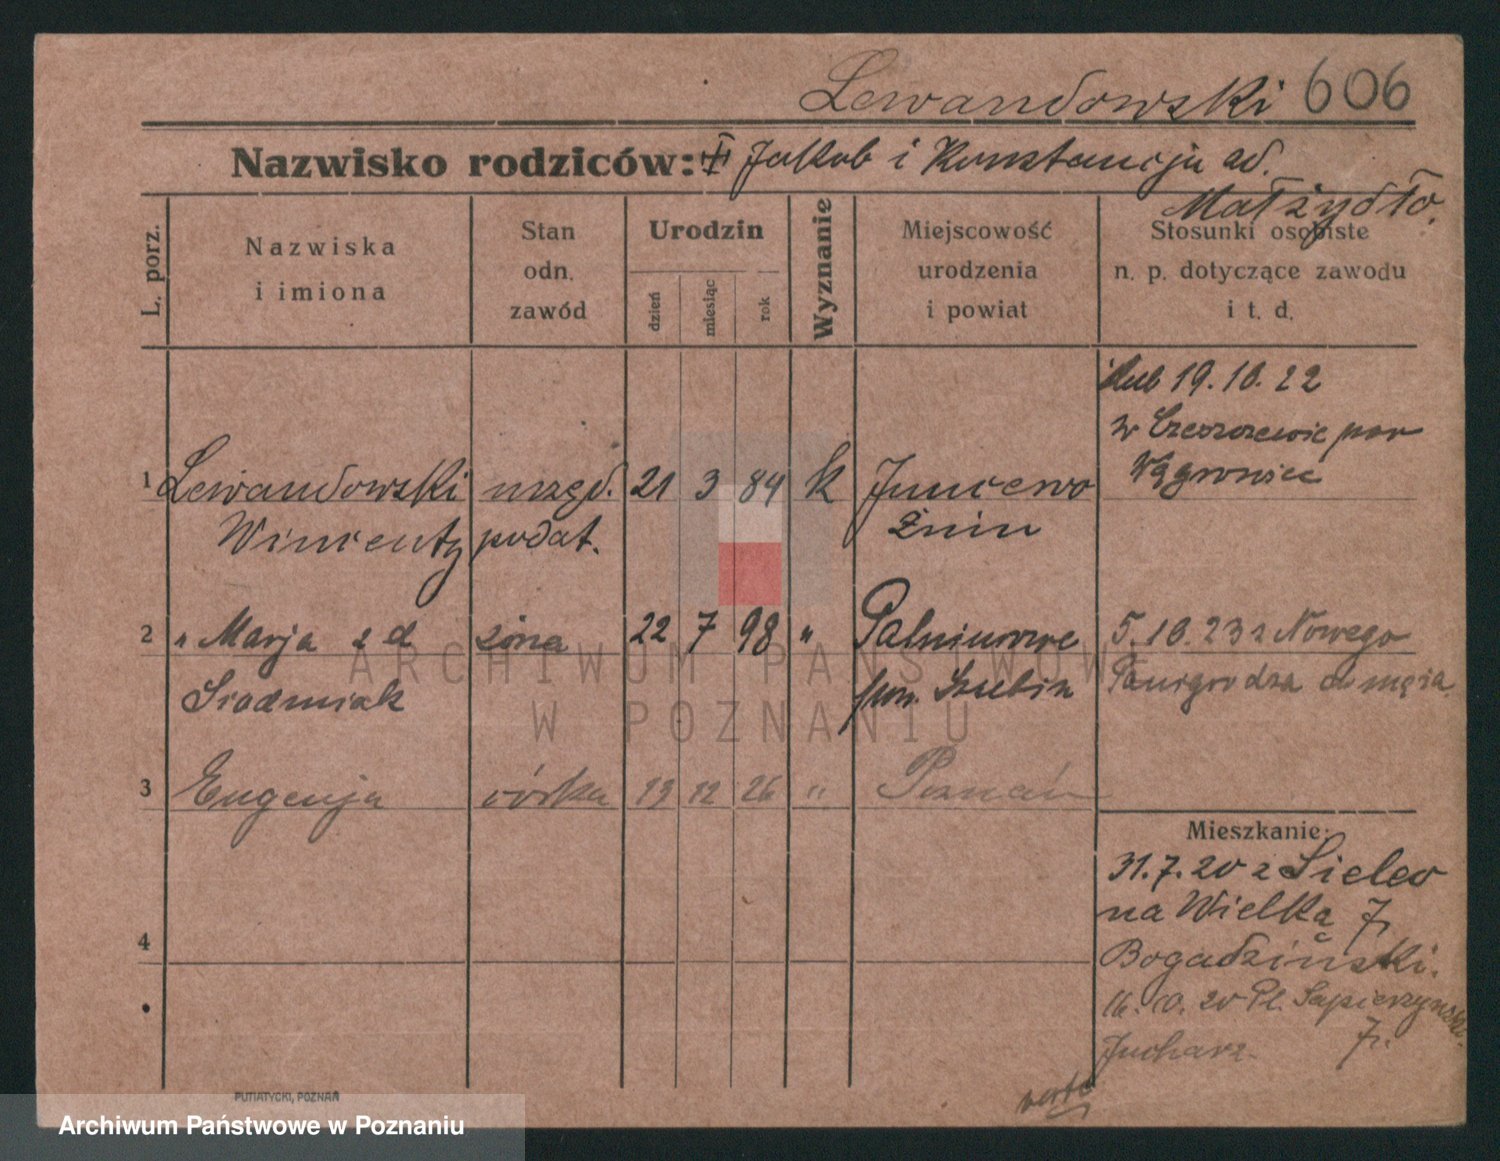 Lewandowski 606
Nazwisko rodziców: Jakob i Konstancja zd.
Małżydło.
L. porz.
Nazwiska
i imiona
Stan
odn.
zawód
Urodzin
dzień
miesiąc
rok
Wyznanie
Miejscowość
urodzenia
i powiat
Stosunki osobiste
n. p. dotyczące zawodu
i t. d.
ślub 19.10.22
w Czeszewie pow
Wągrowiec
1 Lewandowski urzęd. 21 3 84 k Juncewo
Wincenty podat. Żnin
2 " Marja z d żona 22 7 98 " 5.10.23 z Nowego
Siadmiak pow. Szubin Panigrodza do męża
3 Eugenja córka 19 12 26 " Poznań
Mieszkanie:
31.7.20 z Sielew
na Wielką 7,
Bogadziński.
4
16.10.20 Pl. Sapieżyński
7.
verte
PUTIATYCKI, POZNAŃ
ARCHIWUM PAŃSTWOWE
W POZNANIU
Archiwum Państwowe w Poznaniu